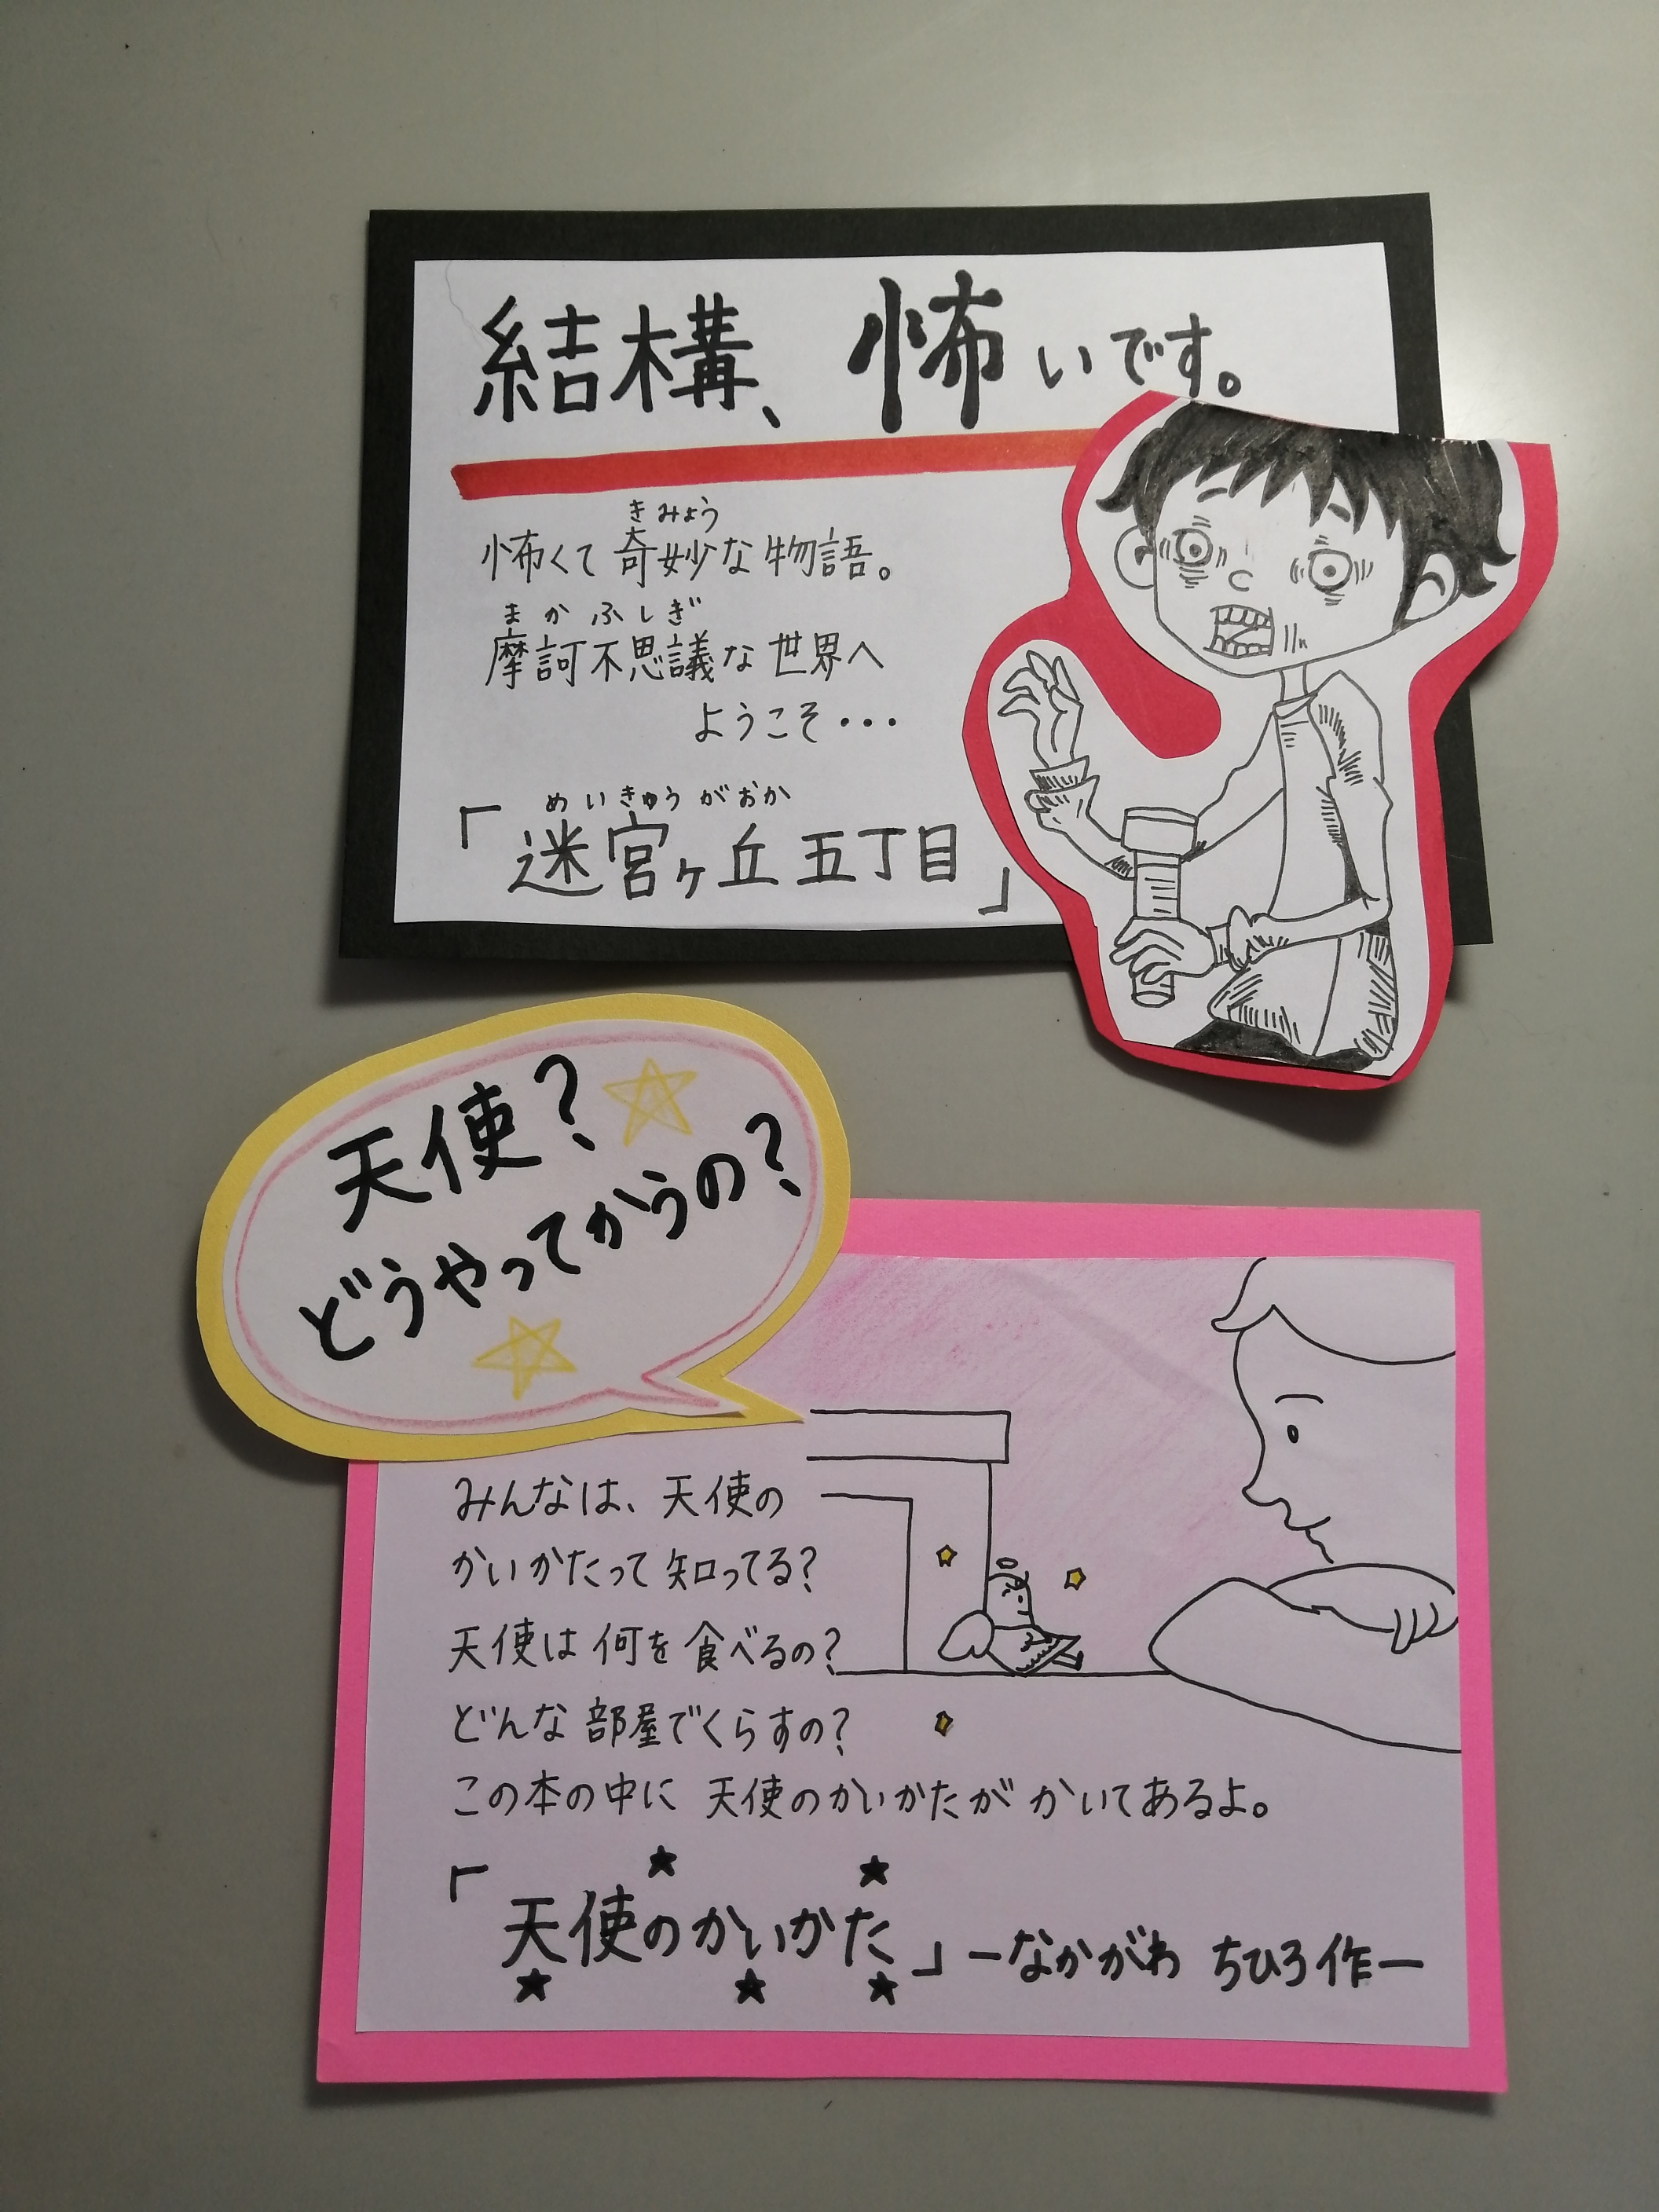 結構、怖いです。
きみょう
怖くて奇妙な物語。
まかふしぎ
摩訶不思議な世界へ
ようこそ・・・
めいきゅうがおか
「迷宮ヶ丘五丁目」
天使?
どうやってかうの?
みんなは、天使の
かいかたって知ってる?
天使は何を食べるの?
どんな部屋でくらすの?
この本の中に天使のかいかたがかいてあるよ。
「天使のかいかた」ーなかがわ ちひろ作ー